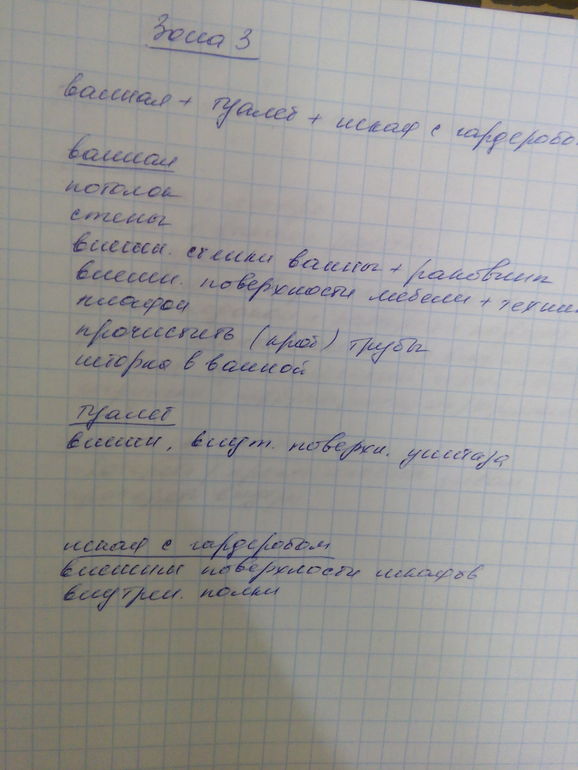 Зона 3
ванная + туалет + шкаф с гардеробо
ванная
потолок
стены
внешн. стенки ванны + раковины
внешн. поверхности мебели + техни
плафон
прочистить (крот) трубы
шторка в ванной
туалет
внешн, внут. поверхн. унитаза
шкаф с гардеробом
внешние поверхности шкафов
внутрен. полки